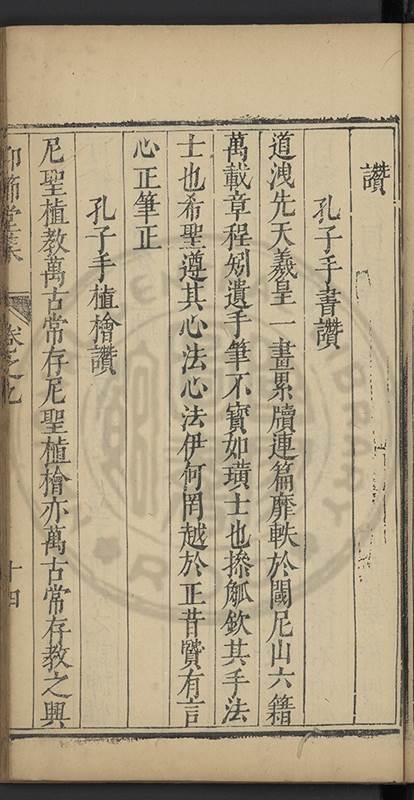 讚
孔子手書讚
道洩先天羲皇一畫累牘連篇靡軼於閾尼山六籍
萬載章程矧遺手筆不寶如璜士也摻觚欽其手法
士也希聖遵其心法心法伊何罔越於正昔贒有言
心正筆正
孔子手植檜讚
尼聖植教萬古常存尼聖植檜亦萬古常存教之興
仰節堂集
卷之九
十四